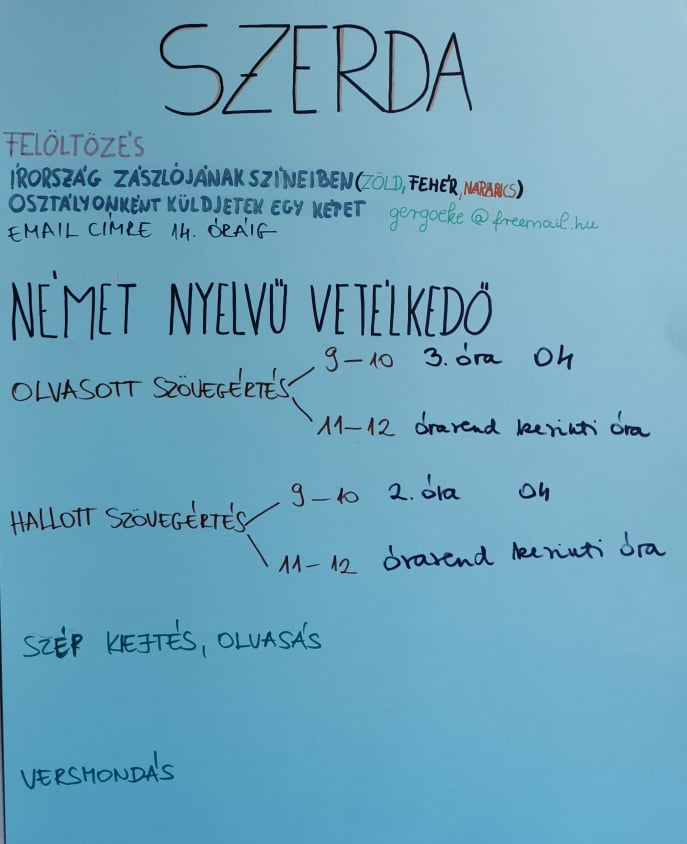 SZERDA
FELÖLTÖZÉS
ÍRORSZÁG ZÁSZLÓJÁNAK SZÍNEIBEN (ZÖLD, FEHÉR, NARANCS)
OSZTÁLYONKÉNT KÜLDJETEK EGY KÉPET gergoeke@freemail.hu
EMAIL CÍMRE 14. ÓRÁIG
NÉMET NYELVŰ VETÉLKEDŐ
9-10 3. óra 04
OLVASOTT SZÖVEGÉRTÉS
11-12 órarend kerinti óra
9-10 2. óra 04
HALLOTT SZÖVEGÉRTÉS
11-12 órarend kerinti óra
SZÉP KIEJTÉS, OLVASÁS
VERSMONDÁS